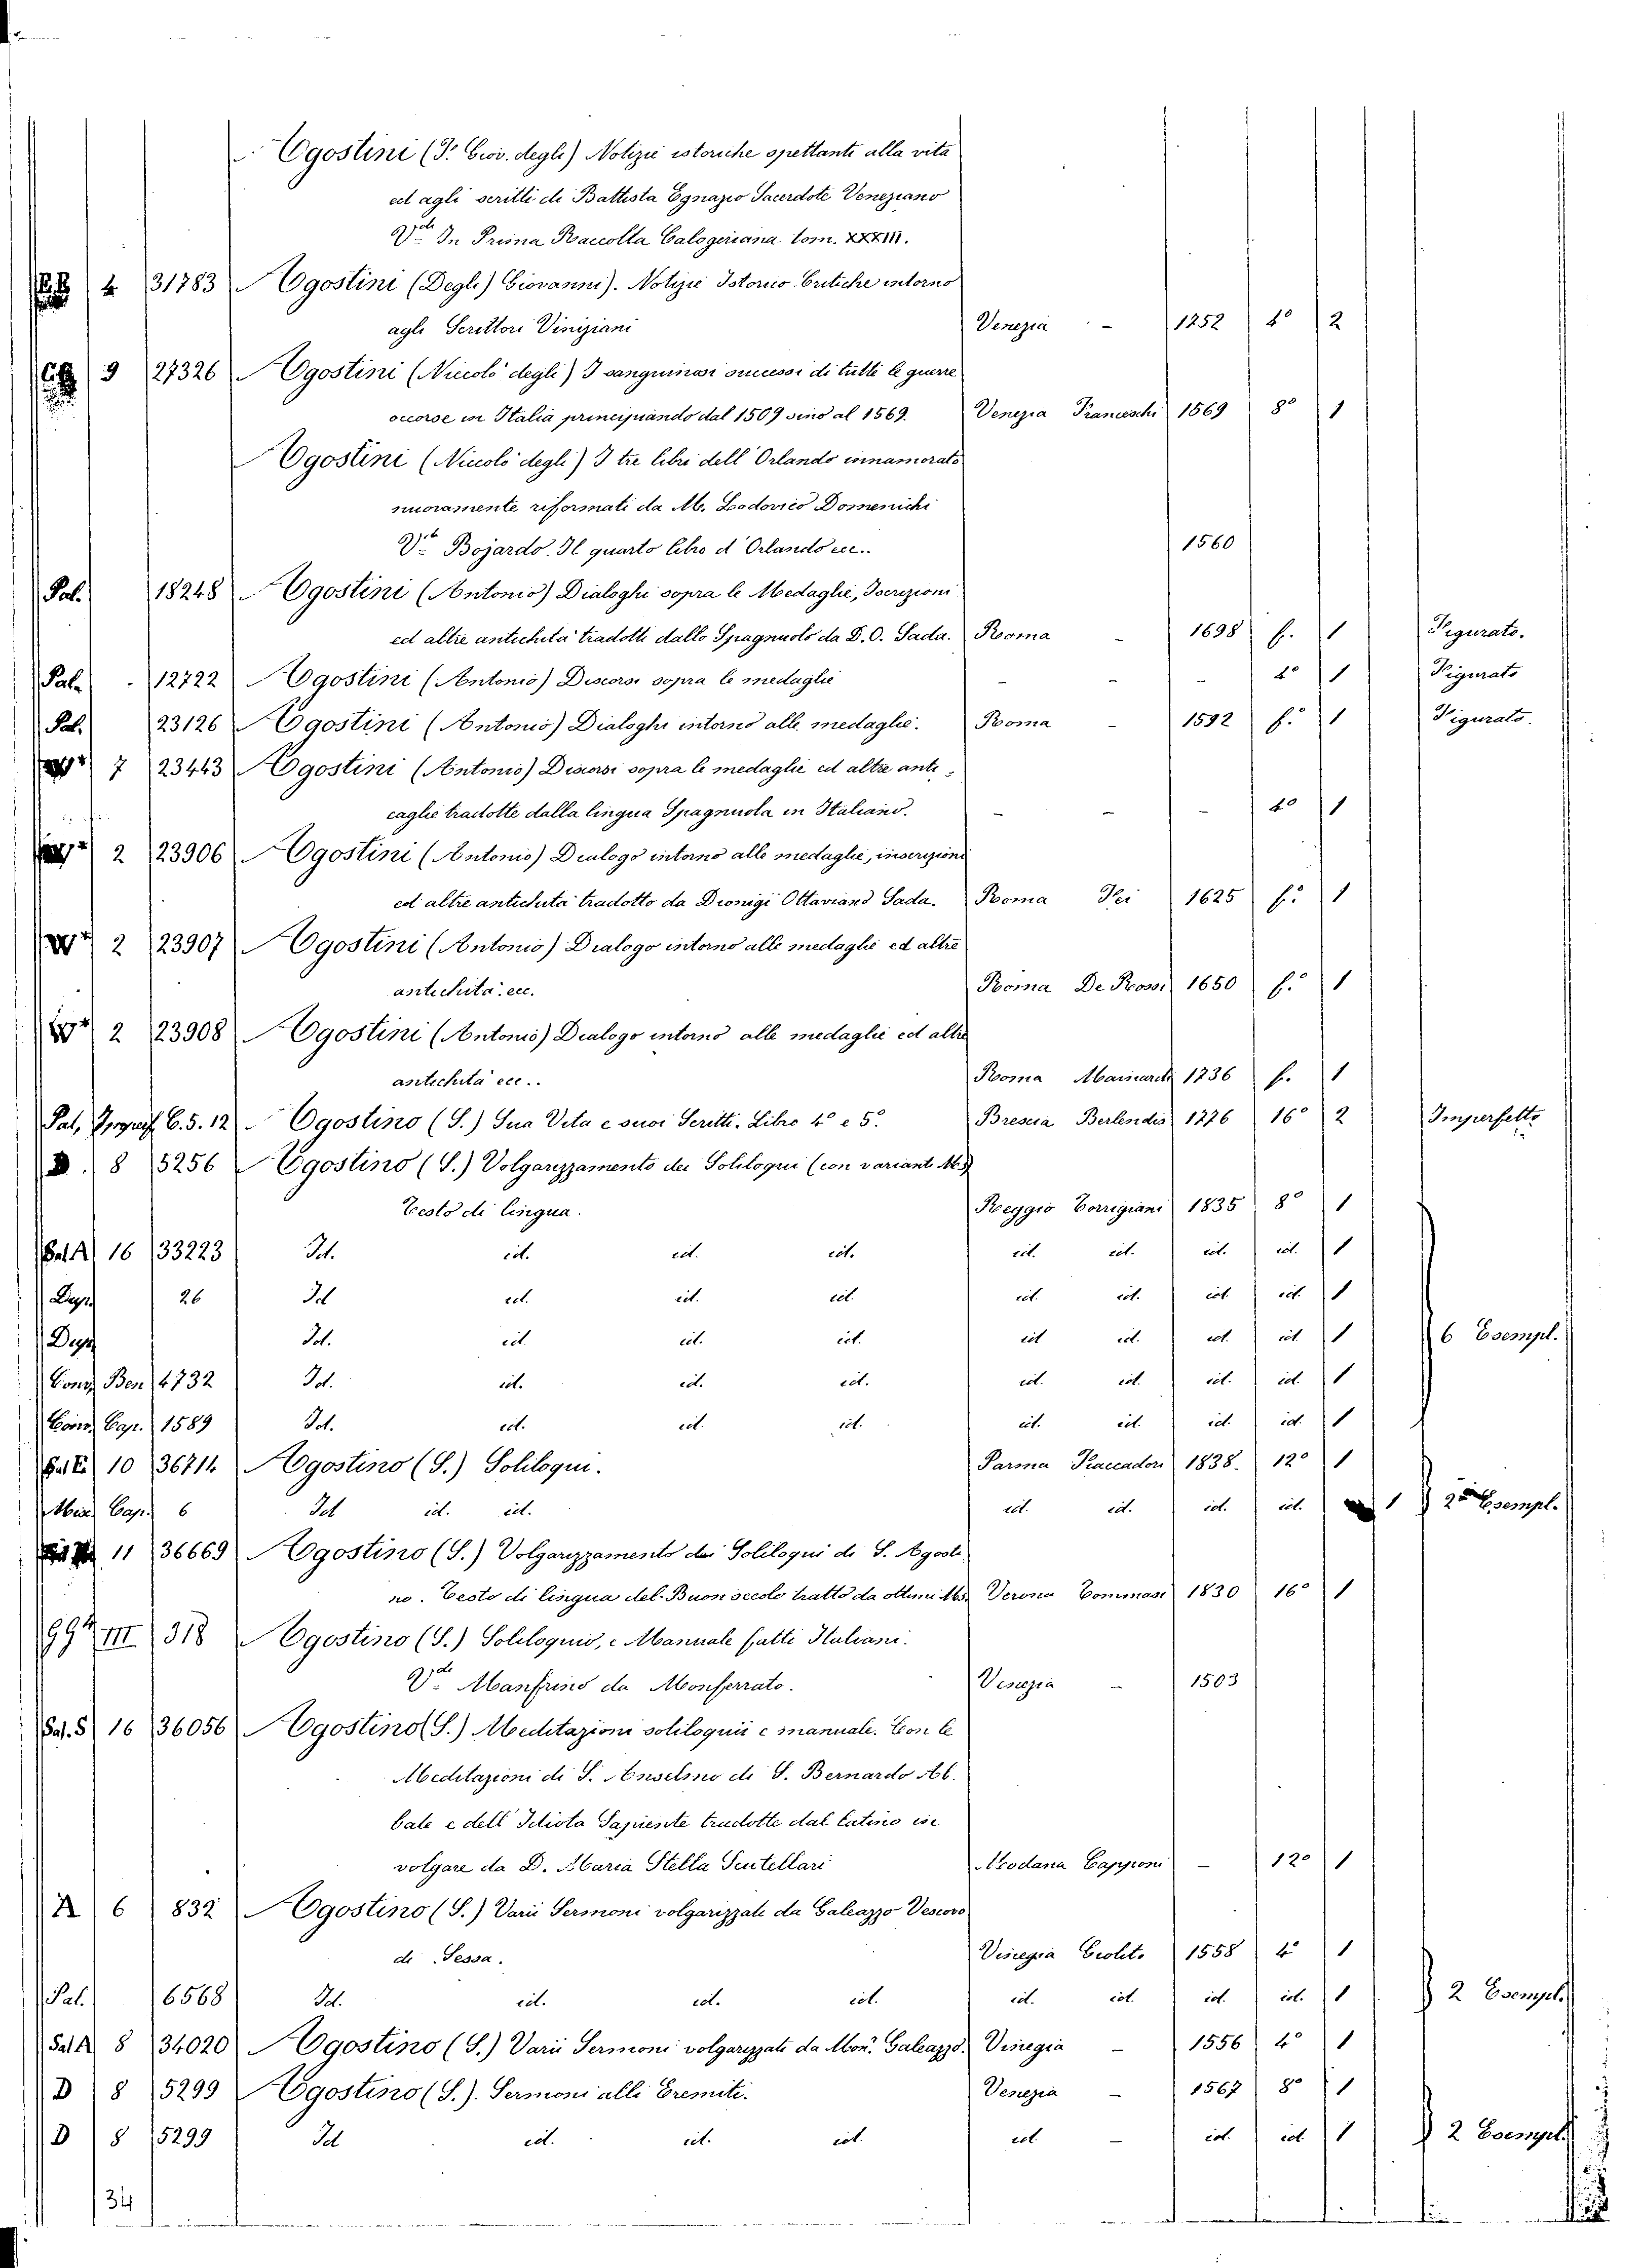 Agostini (F. Giov. degli) Notizie istoriche spettanti alla vita
ed agli scritti di Battista Egnazio Sacerdote Veneziano
V.e In Prima Raccolta Calogeriana tom. XXXIII.
4 31783 Agostini (Degli) Giovanni). Notizie Istorico-Critiche intorno
agli Scrittori Viniziani Venezia - 1752 4º 2
9 27326 Agostini (Niccolò degli) I sanguinosi successi di tutte le guerre
occorse in Italia principiando dal 1509 sino al 1569. Venezia Franceschi 1569 8º 1
Agostini (Niccolò degli) I tre libri dell'Orlando innamorato
nuovamente riformati da M. Lodovico Domenichi
V.e Bojardo. Il quarto libro d'Orlando ecc.. 1560
Pal. 18248 Agostini (Antonio) Dialoghi sopra le Medaglie, Iscrizioni
ed altre antichità tradotti dallo Spagnuolo da D. O. Sada. Roma - 1698 f. 1 Figurato.
Pal. 12722 Agostini (Antonio) Discorsi sopra le medaglie - - - 4º 1 Figurato
Pal. 23126 Agostini (Antonio) Dialoghi intorno alle medaglie. Roma - 1592 f.º 1 Figurato.
7 23443 Agostini (Antonio) Discorsi sopra le medaglie ed altre anti-
caglie tradotte dalla lingua Spagnuola in Italiano. - - - 4º 1
2 23906 Agostini (Antonio) Dialogo intorno alle medaglie, inscrizioni
ed altre antichità tradotto da Dionigi Ottaviano Sada. Roma Fei 1625 f.º 1
2 23907 Agostini (Antonio) Dialogo intorno alle medaglie ed altre
antichità ecc. Roma De Rossi 1650 f.º 1
2 23908 Agostini (Antonio) Dialogo intorno alle medaglie ed altre
antichità ecc.. Roma Mainardi 1736 f. 1
Pal. C. 5. 12. Agostino (S.) Sua Vita e suoi Scritti. Libro 4º e 5º. Brescia Berlendis 1776 16º 2 Imperfetto
D. 8 5256 Agostino (S.) Volgarizzamento dei Soliloqui (con varianti MS)
Testo di lingua. Reggio Torrigiani 1835 8º 1
Sal A 16 33223 Id. id. id. id. id. id. id. id. 1
Dup. 26 Id id. id. id. id. id. id. id. 1
Dup Id. id. id. id. id id. id. id. 1 6 Esempl.
Conv. Ben 4732 Id. id. id. id. id. id. id. id. 1
Conv. Cap. 1589 Id. id. id. id. id. id. id. id. 1
10 36714 Agostino (S.) Soliloqui. Parma Fiaccadori 1838. 12º 1
Misc. Cap. 6 Id id. id. id. id. id. id. 1 2 Esempl.
11 36669 Agostino (S.) Volgarizzamento dei Soliloqui di S. Agosti
no. Testo di lingua del Buon secolo tratto da ottimi Ms. Verona Tommasi 1830 16º 1
III 318 Agostino (S.) Soliloquio, e Manuale fatti Italiani.
V.de Manfrino da Monferrato. Venezia - 1503
Sal. S 16 36056 Agostino (S.) Meditazioni soliloquii e manuale. Con le
Meditazioni di S. Anselmo di S. Bernardo Ab.
bate e dell'Idiota Sapiente tradotte dal latino in
volgare da D. Maria Stella Scutellari Modana Capponi - 12º 1
A 6 832 Agostino (S.) Varii Sermoni volgarizzati da Galeazzo Vescovo
di Sessa. Vinegia Giolito 1558 4º 1
Pal. 6568 Id. id. id. id. id. id. id. id. 1 2 Esempl.
Sal A 8 34020 Agostino (S.) Varii Sermoni volgarizzati da Mon.r Galeazzo. Vinegia - 1556 4º 1
D 8 5299 Agostino (S.). Sermoni alli Eremiti. Venezia - 1567 8º 1
D 8 5299 Id id. id. id. id. - id. id. 1 2 Esempl.
34